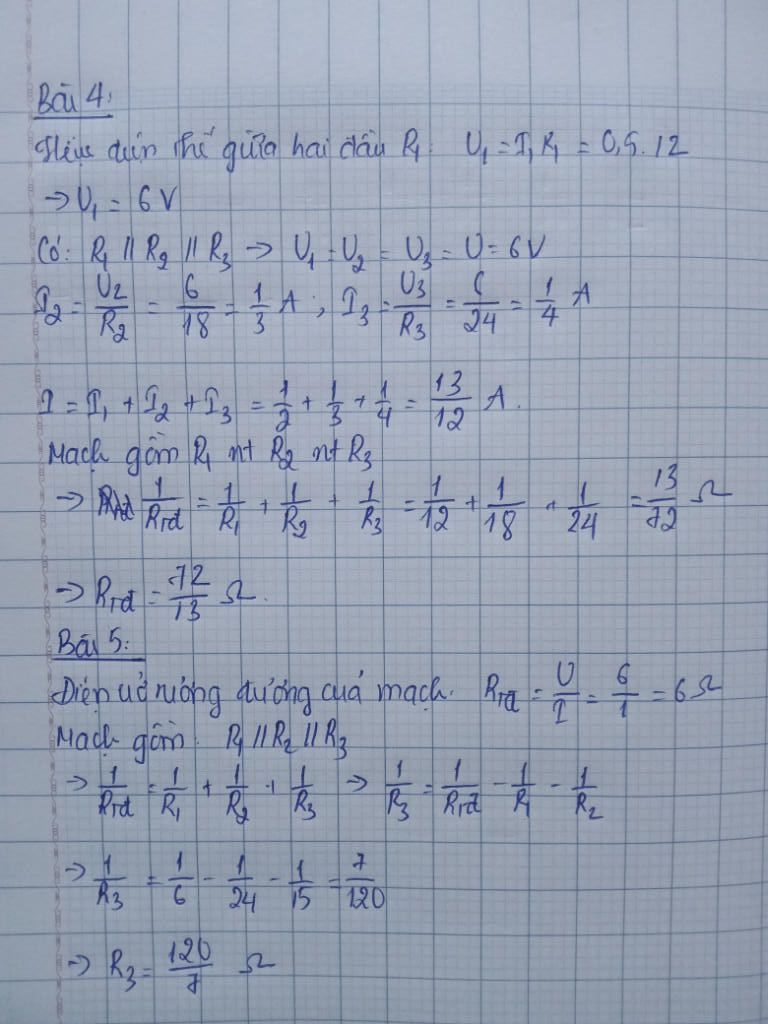 Bài 4:
Hiệu điện thế giữa hai đầu R₁: U₁ = I₁R₁ = 0,5.12
→ U₁ = 6V
Có: R₁ // R₂ // R₃ → U₁ = U₂ = U₃ = U = 6V
I₂ = U₂/R₂ = 6/18 = 1/3 A ; I₃ = U₃/R₃ = 6/24 = 1/4 A
I = I₁ + I₂ + I₃ = 1/2 + 1/3 + 1/4 = 13/12 A.
Mạch gồm R₁ nt R₂ nt R₃
→ 1/Rtđ = 1/R₁ + 1/R₂ + 1/R₃ = 1/12 + 1/18 + 1/24 = 13/72 Ω
→ Rtđ = 72/13 Ω.
Bài 5:
Điện trở tương đương của mạch. Rtđ = U/I = 6/1 = 6Ω
Mạch gồm: R₁ // R₂ // R₃
→ 1/Rtđ = 1/R₁ + 1/R₂ + 1/R₃ → 1/R₃ = 1/Rtđ - 1/R₁ - 1/R₂
→ 1/R₃ = 1/6 - 1/24 - 1/15 = 7/120
→ R₃ = 120/7 Ω